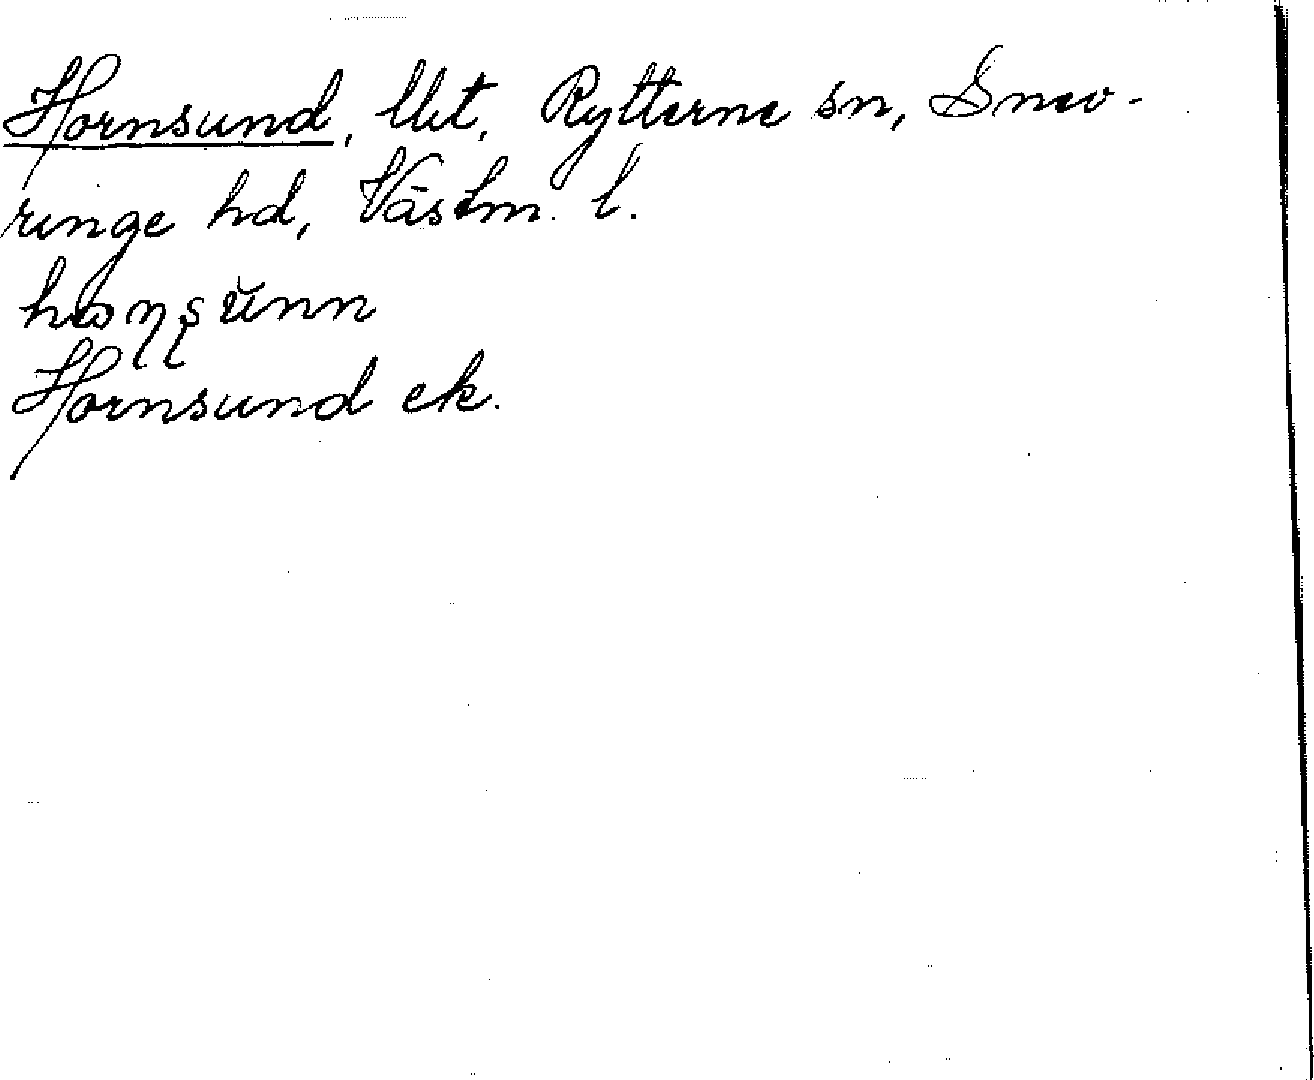 Hornsund, lht, Rytterne sn, Snev-
ringe hd, Västm. l.
Hornsund ek.